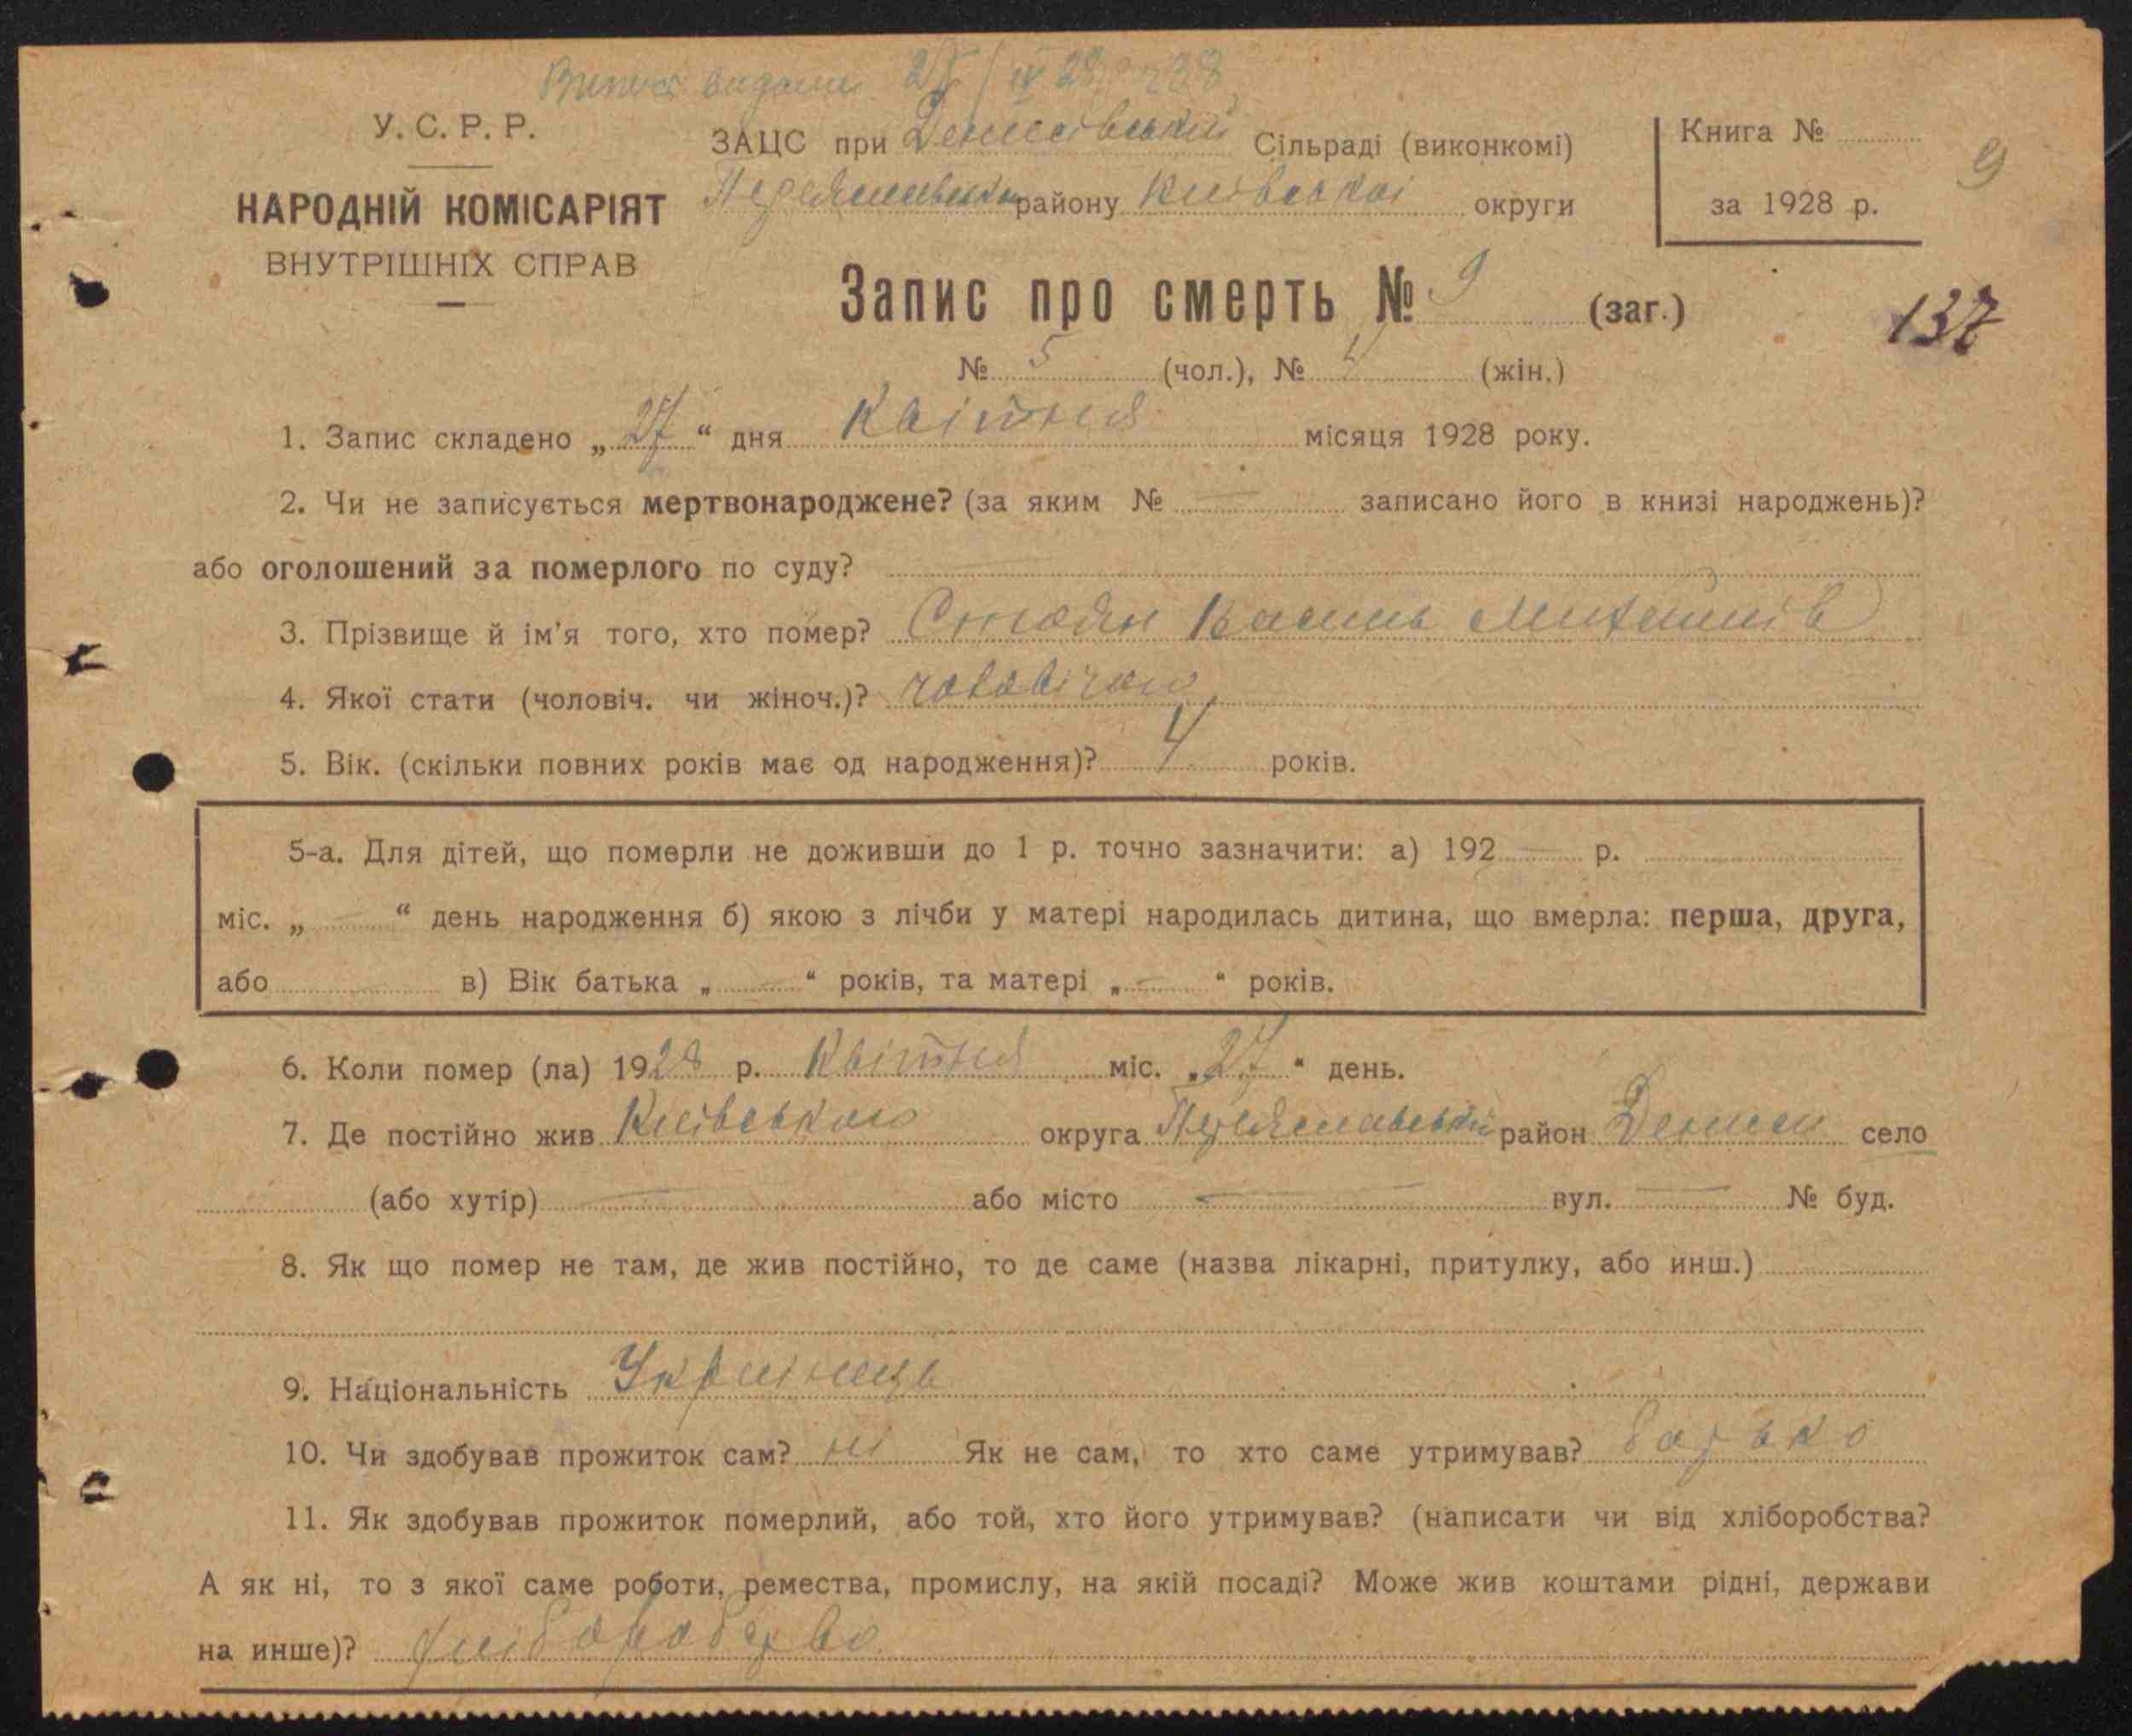 Випис видано 27/IV 28
У. С. Р. Р.
НАРОДНІЙ КОМІСАРІЯТ
ВНУТРІШНІХ СПРАВ
ЗАЦС при Денисівській Сільраді (виконкомі)
Переяславськ району Київської округи
Книга №
за 1928 р.
9
137
Запис про смерть № 9 (заг.)
№ 5 (чол.), № 4 (жін.)
1. Запис складено „27“ дня Квітня місяця 1928 року.
2. Чи не записується мертвонароджене? (за яким № — записано його в книзі народжень)?
або оголошений за померлого по суду? —
3. Прізвище й ім'я того, хто помер? Стоян Василь Михайлів
4. Якої стати (чоловіч. чи жіноч.)? чоловічою
5. Вік. (скільки повних років має од народження)? 4 років.
5-а. Для дітей, що померли не доживши до 1 р. точно зазначити: а) 192 — р.
міс. „ — “ день народження б) якою з лічби у матері народилась дитина, що вмерла: перша, друга,
або — в) Вік батька „ — “ років, та матері „ — “ років.
6. Коли помер (ла) 1928 р. Квітня міс. „27“ день.
7. Де постійно жив Київською округа Переяславській район Дениси село
(або хутір) — або місто — вул. — № буд.
8. Як що помер не там, де жив постійно, то де саме (назва лікарні, притулку, або инш.)
9. Національність Українець
10. Чи здобував прожиток сам? ні Як не сам, то хто саме утримував? батько
11. Як здобував прожиток померлий, або той, хто його утримував? (написати чи від хліборобства?
А як ні, то з якої саме роботи, ремества, промислу, на якій посаді? Може жив коштами рідні, держави
на инше)? хліборобство